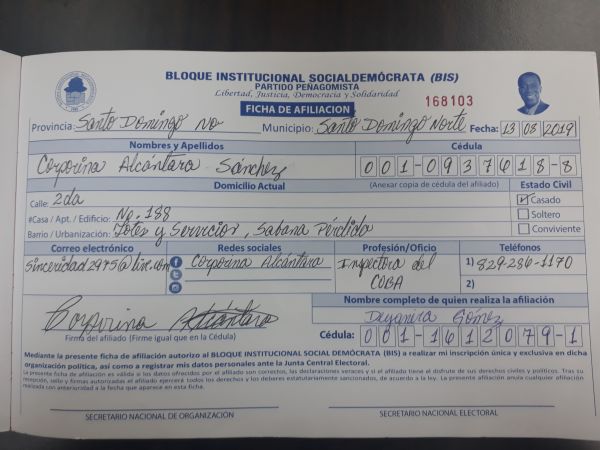 BLOQUE INSTITUCIONAL SOCIALDEMÓCRATA (BIS)
PARTIDO PEÑAGOMISTA
Libertad, Justicia, Democracia y Solidaridad
FICHA DE AFILIACION
168103
Provincia: Santo Domingo No Municipio: Santo Domingo Norte Fecha: 13 08 2019
Nombres y Apellidos Cédula
Corporina Alcántara Sánchez 001-0937618-8
Domicilio Actual (Anexar copia de cédula del afiliado) Estado Civil
Calle: 2da Casado
#Casa / Apt. / Edificio: No. 188 Soltero
Barrio / Urbanización: Lotes y Servicios, Sabana Pérdida Conviviente
Correo electrónico Redes sociales Profesión/Oficio Teléfonos
sinceridad2975@live.com Corporina Alcántara Inspectora del 1) 829-286-1170
COBA 2)
Nombre completo de quien realiza la afiliación
Corporina Alcántara Deyanira Gómez
Firma del afiliado (Firme igual que en la Cédula) Cédula: 001-1612079-1
Mediante la presente ficha de afiliación autorizo al BLOQUE INSTITUCIONAL SOCIAL DEMÓCRATA (BIS) a realizar mi inscripción única y exclusiva en dicha
organización política, así como a registrar mis datos personales ante la Junta Central Electoral.
La presente ficha de afiliación es válida si los datos ofrecidos por el afiliado son correctos, las declaraciones veraces y si el afiliado tiene el disfrute de sus derechos civiles y políticos. Tras su
recepción, sello y firmas autorizadas el afiliado ejercerá todos los derechos y los deberes estatutariamente sancionados, de acuerdo a la ley. La presente afiliación anula cualquier afiliación
realizada con anterioridad a la fecha que aparece en esta ficha.
SECRETARIO NACIONAL DE ORGANIZACIÓN SECRETARIO NACIONAL ELECTORAL